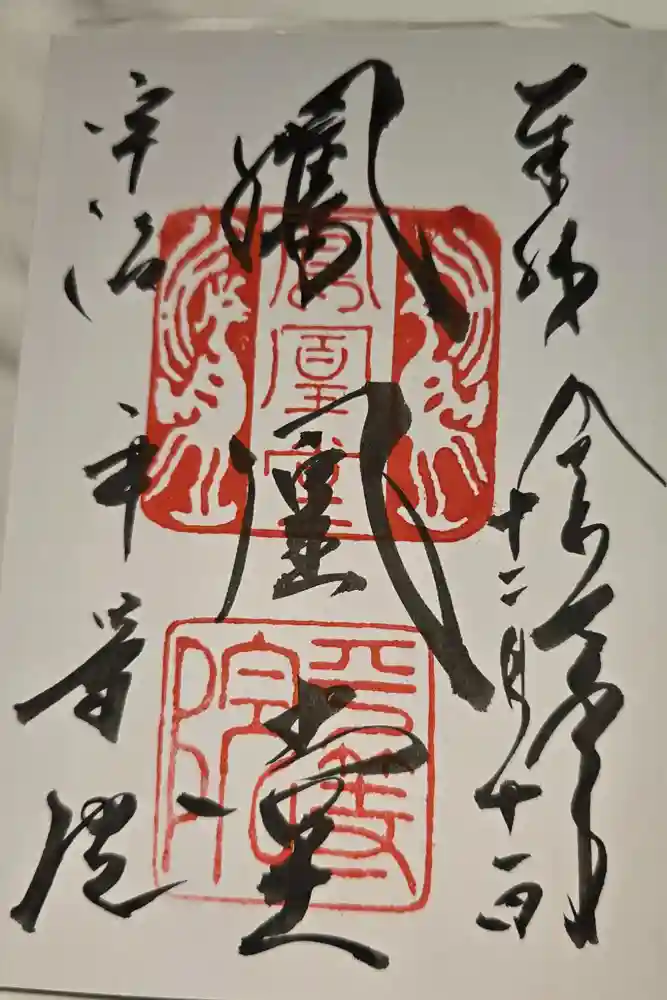 奉拝
令和六年
十二月十一日
鳳凰堂
宇治 平等院
鳳凰堂
平等院